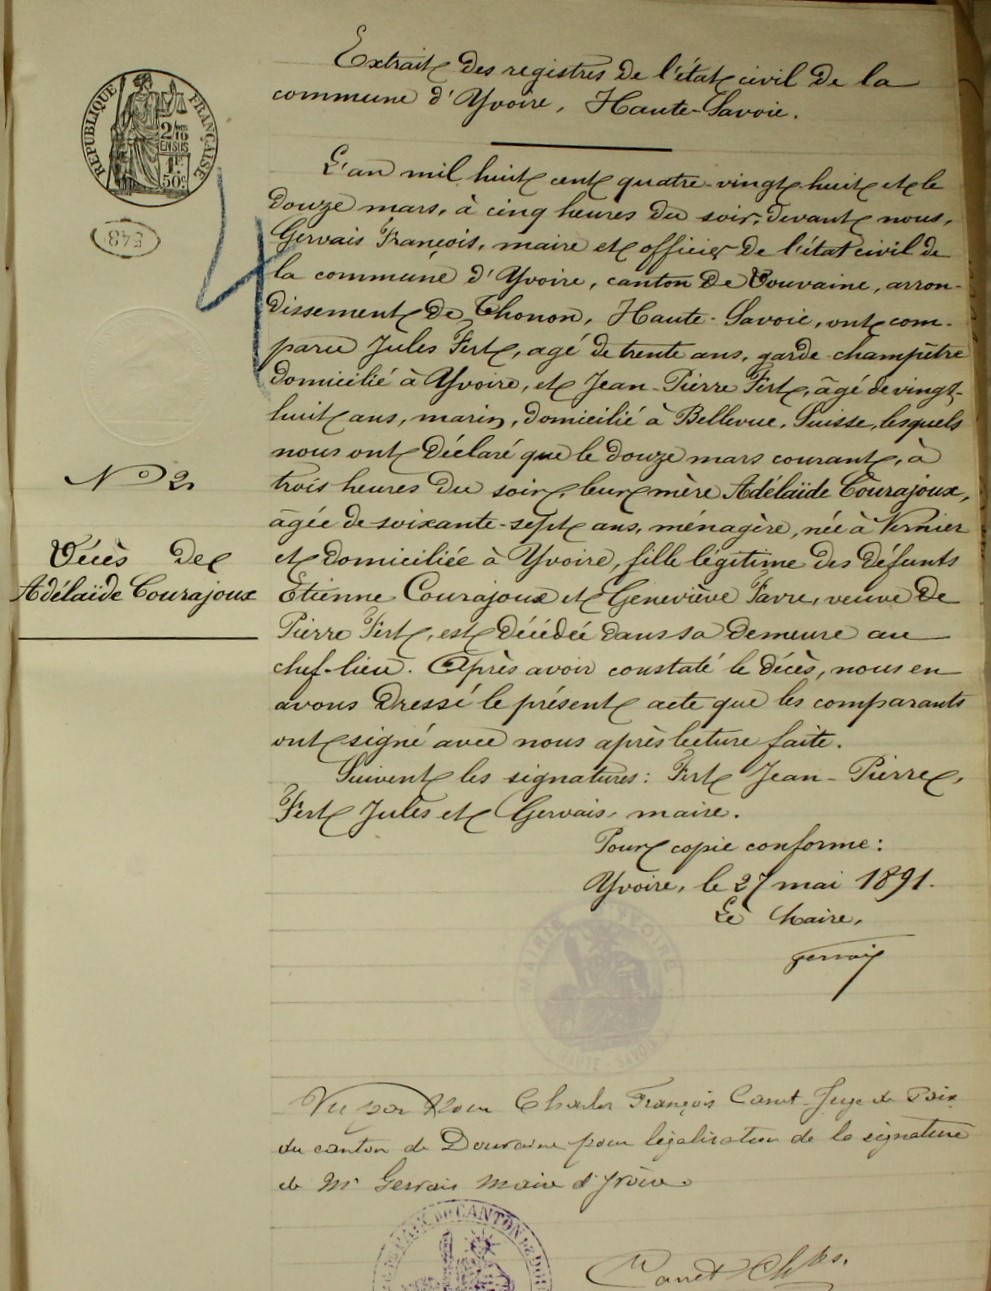 Extrait des registres de l'état civil de la
commune d'Yvoire, Haute-Savoie.
RÉPUBLIQUE FRANÇAISE
2/10
EN SUS
1F
50c
548
L'an mil huit cent quatre-vingt huit et le
douze mars, à cinq heures du soir, devant nous,
Gervais François, maire et officier de l'état civil de
la commune d'Yvoire, canton de Douvaine, arron-
dissement de Thonon, Haute-Savoie, ont com-
paru Jules Fert, agé de trente ans, garde-champêtre
domicilié à Yvoire, et Jean-Pierre Fert, âgé de vingt-
huit ans, marin, domicilié à Bellevue, Suisse, lesquels
nous ont déclaré que le douze mars courant, à
trois heures du soir, leur mère Adélaïde Courajoux,
âgée de soixante-sept ans, ménagère, née à Vernier
et domiciliée à Yvoire, fille légitime des défunts
Etienne Courajoux et Geneviève Favre, veuve de
Pierre Fert, est décédée dans sa demeure au
chef-lieu. Après avoir constaté le décès, nous en
avons dressé le présent acte que les comparants
ont signé avec nous après lecture faite.
Suivent les signatures: Fert Jean-Pierre,
Fert Jules et Gervais, maire.
Pour copie conforme:
Yvoire, le 27 mai 1891.
Le Maire,
Gervais
No 2
Décès de
Adélaïde Courajoux
MAIRIE D'YVOIRE
HAUTE-SAVOIE
Vu par Nous Charles François Canet Juge de Paix
du canton de Douvaine pour légalisation de la signature
de Mr Gervais Maire d'Yvoire
DE PAIX DU CANTON DE DOU
Canet Chles.